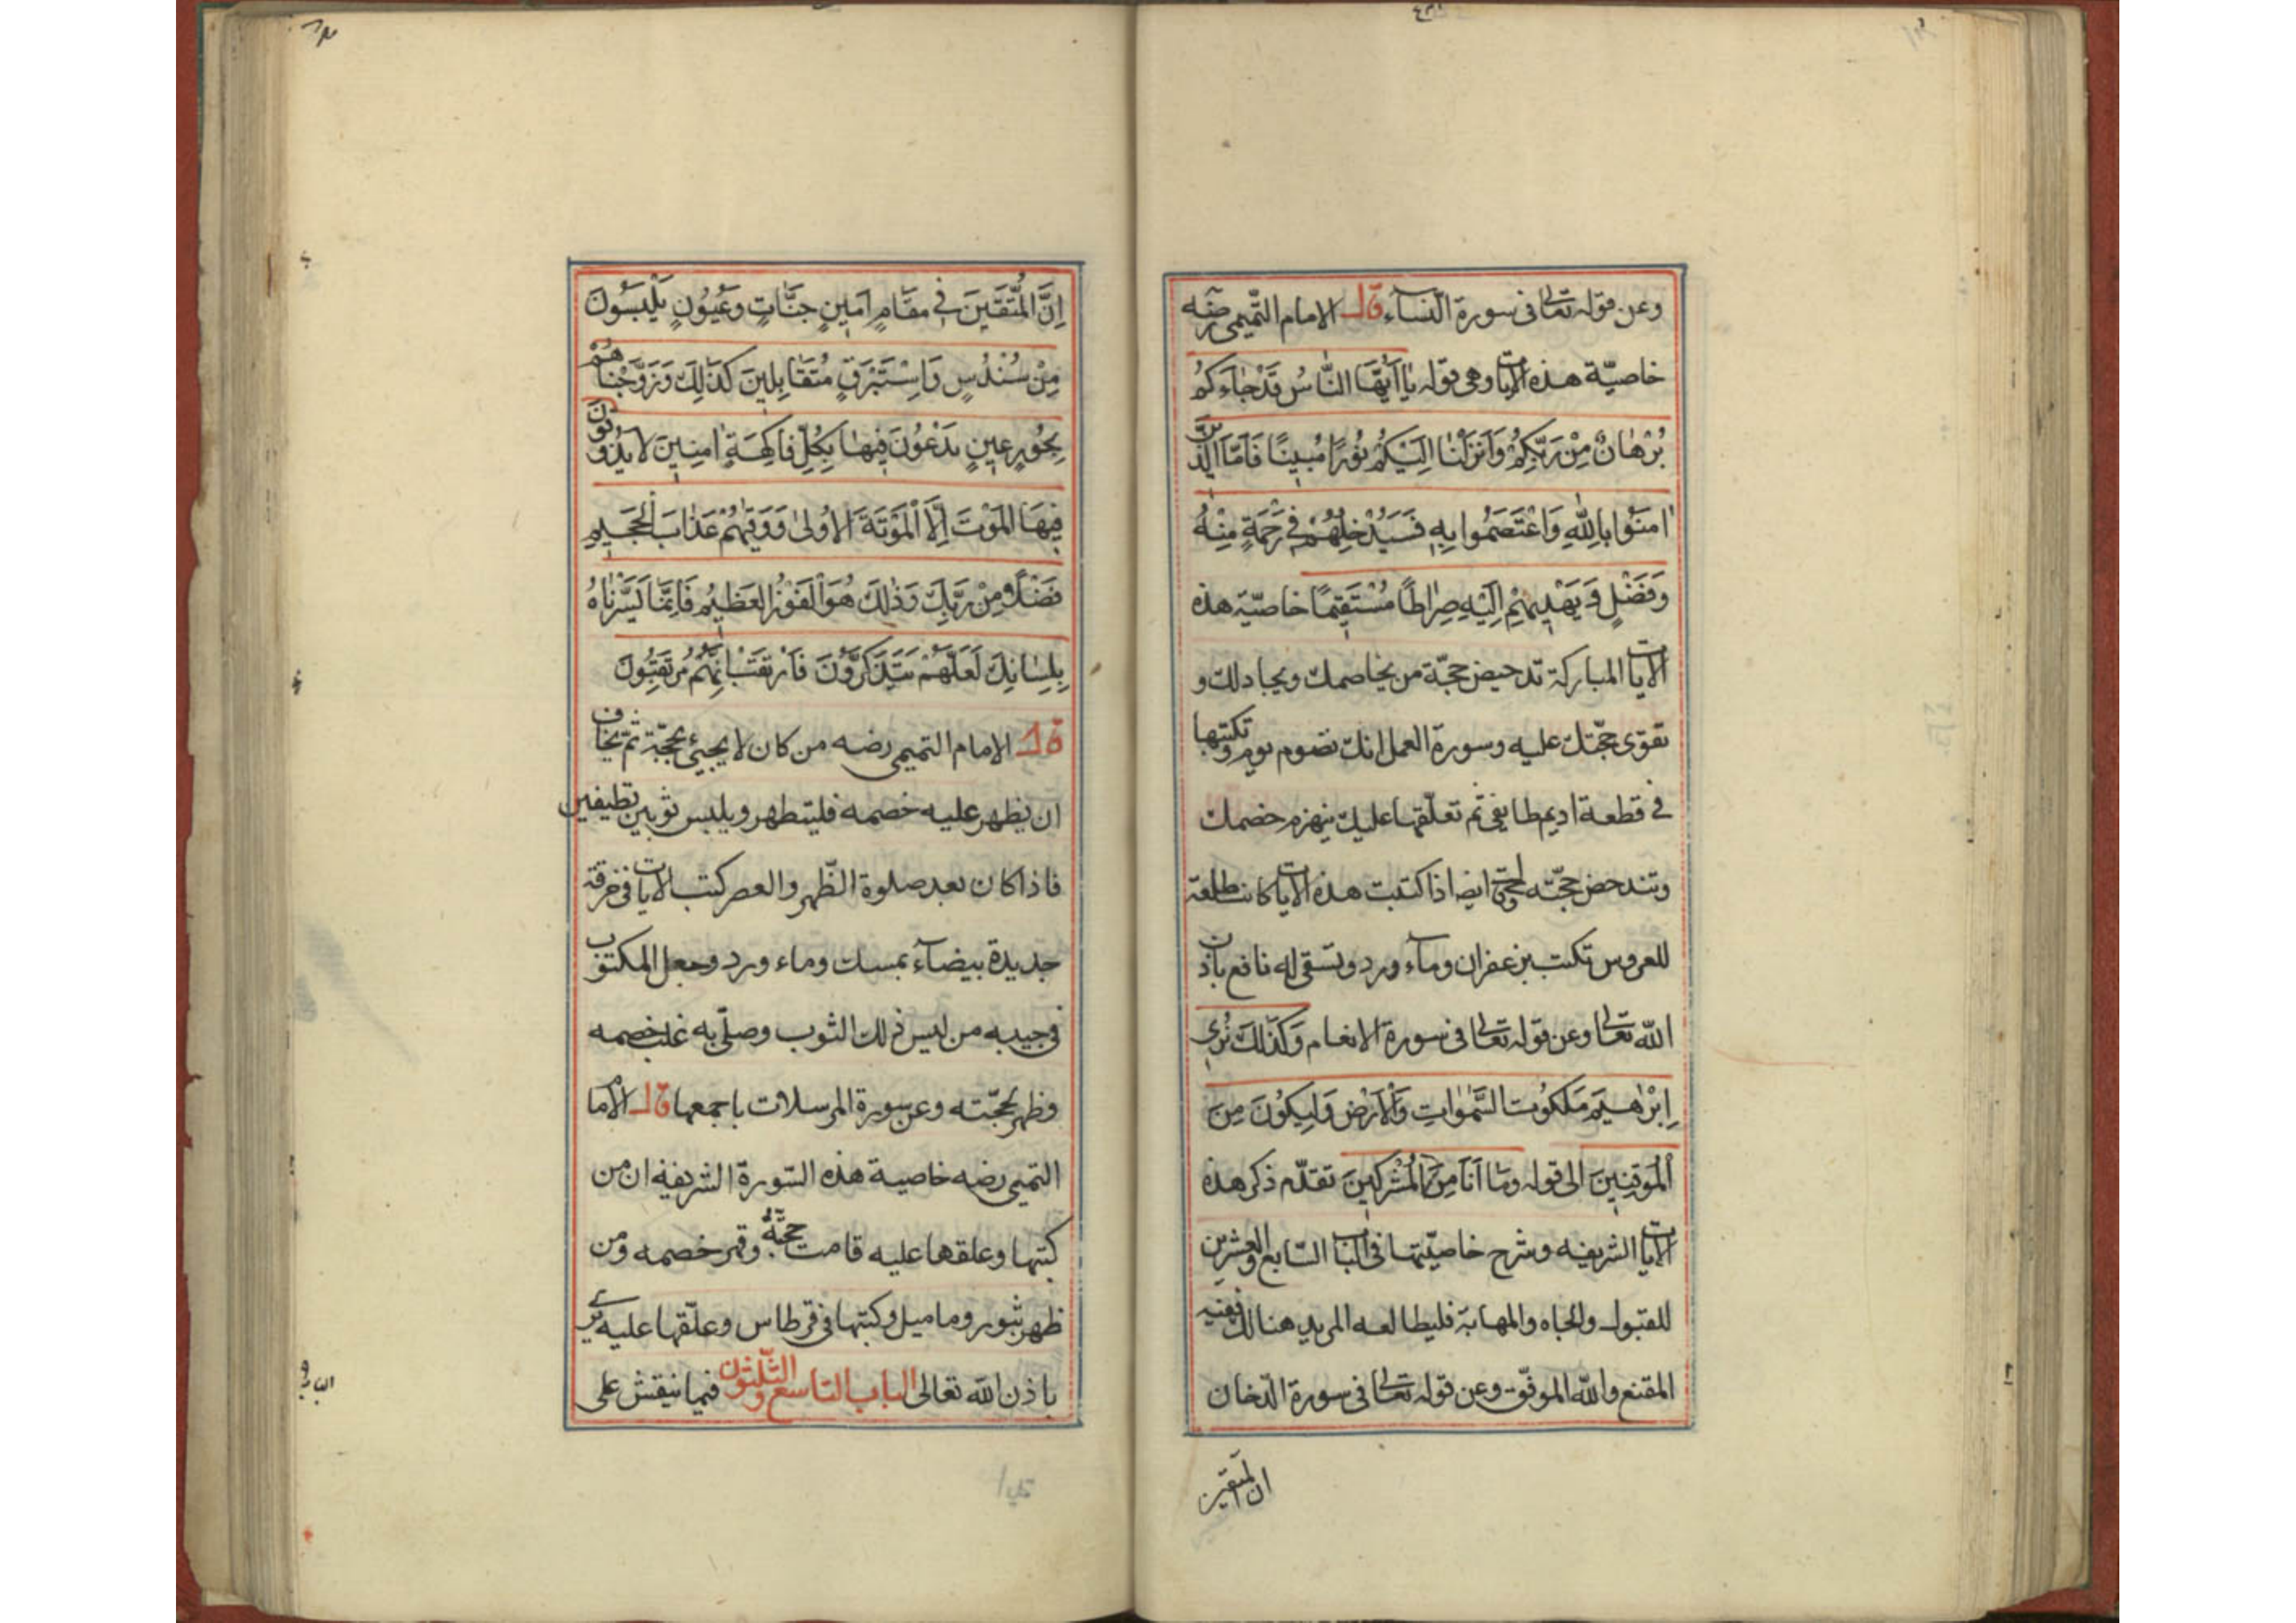 وعن قوله تعالى فى سورة النسآء قال الامام التّميمى رضه
خاصيّة هذه الايات وهى قوله يٰا اَيُّهَا النَّاسُ قَدْ جٰاءَكُمْ
بُرْهٰانٌ مِنْ رَبِّكُمْ وَاَنْزَلْنٰا اِلَيْكُمْ نُورًا مُبِينًا فَاَمَّا الَّذِينَ
اٰمَنُوا بِاللّٰهِ وَاعْتَصَمُوا بِهِ فَسَيُدْخِلُهُمْ فِى رَحْمَةٍ مِنْهُ
وَفَضْلٍ وَيَهْدِيهِمْ اِلَيْهِ صِرٰاطًا مُسْتَقِيمًا خاصيّة هذه
الايات المباركة تدحيض حجّة من يخاصمك ويجادلك و
تقوى حجّتك عليه وسورة العمل انك تصوم يوم وتكتبها
فى قطعة اديم طايفى ثم تعلّقها عليك ينهزم خصمك
وتندحض حجّته ايضا اذا كتبت هذه الايات كانت
للعروس تكتب بزعفران ومآء ورد وتسقى له نافع باذن
اللّه تعالى وعن قوله تعالى فى سورة الانعام وَكَذٰلِكَ نُرِى
اِبْرٰهِيمَ مَلَكُوتَ السَّمٰوٰاتِ وَالْاَرْضِ وَلِيَكُونَ مِنَ
الْمُوقِنِينَ الى قوله وَمَا اَنَا مِنَ الْمُشْرِكِينَ تقدّم ذكر هذه
الايات الشريفه وشرح خاصيّتها فى الباب السّابع والعشرين
للقبول والجاه والمهابة فليطالعه المريد هنالك ففيه
المقنع واللّه الموفّق وعن قوله تعالى فى سورة الدّخان
ان المتقين
اِنَّ الْمُتَّقِينَ فِى مَقَامٍ اَمِينٍ جَنَّاتٍ وَعُيُونٍ يَلْبَسُونَ
مِنْ سُنْدُسٍ وَاِسْتَبْرَقٍ مُتَقَابِلِينَ كَذٰلِكَ وَزَوَّجْنَاهُمْ
بِحُورٍ عِينٍ يَدْعُونَ فِيهَا بِكُلِّ فَاكِهَةٍ اٰمِنِينَ لَا يَذُوقُونَ
فِيهَا الْمَوْتَ اِلَّا الْمَوْتَةَ الْاُولٰى وَوَقٰيهُمْ عَذٰابَ الْجَحِيمِ
فَضْلًا مِنْ رَبِّكَ وَذٰلِكَ هُوَ الْفَوْزُ الْعَظِيمُ فَاِنَّمَا يَسَّرْنٰاهُ
بِلِسٰانِكَ لَعَلَّهُمْ يَتَذَكَّرُونَ فَارْتَقِبْ اِنَّهُمْ مُرْتَقِبُونَ
قال الامام التميمى رضه من كان لا يجيئ بحجّة ثم يخاف
ان يظهر عليه خصمه فليتطهر ويلبس ثوبين نظيفين
فاذا كان بعد صلوة الظّهر والعصر كتب الايات فى خرقة
جديدة بيضآء بمسك وماء ورد وجعل المكتوب
فى جيبه من لبس ذلك الثوب وصلّى به غلب خصمه
وظهر بحجّته وعن سورة المرسلات باجمعها قال الامام
التميمى رضه خاصية هذه السّورة الشريفة ان من
كتبها وعلقها عليه قامت حجّةُ وقهر خصمه ومن
ظهر بثبور ودماميل وكتبها فى قرطاس وعلّقها عليه يبرى
باذن اللّه تعالى الباب التاسع والثّلثون فيما ينقش على